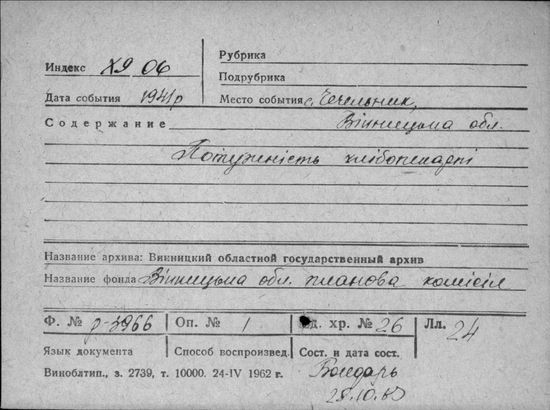 Рубрика
Индекс ХЯ 06
Подрубрика
Дата события 1941р Место события с. Чечельник,
Содержание Вінницька обл.
Потужність хлібопекарні
Название архива: Винницкий областной государственный архив
Название фонда Вінницька обл. планова комісія
Ф. № р-3966 Оп. № 1 Ед. хр. № 26 Лл. 24
Язык документа Способ воспроизвед. Сост. и дата сост.
Виноблтип., з. 2739, т. 10000. 24-IV 1962 г. Бондарь